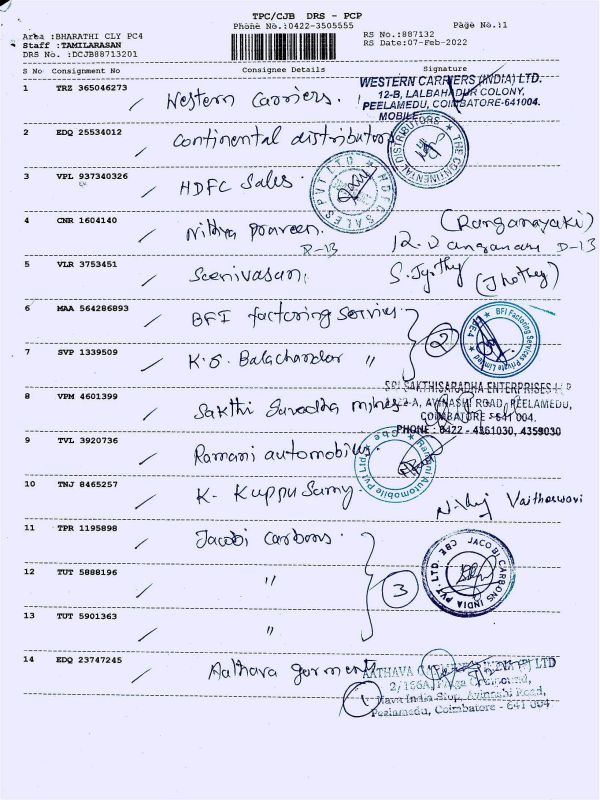 TPC/CJB DRS - PCP
Phone No.:0422-3505555
Page No.:1
Area :BHARATHI CLY PC4
Staff :TAMILARASAN
DRS No. :DCJB88713201
RS No.:887132
RS Date:07-Feb-2022
S No Consignment No Consignee Details Signature
1 TRZ 365046273 Western Carriers.
WESTERN CARRIERS (INDIA) LTD.
12-B, LALBAHADUR COLONY,
PEELAMEDU, COIMBATORE-641004.
MOBILE
2 EDQ 25534012 Continental distributors
THE CONTINENTAL DISTRIBUTORS
3 VPL 937340326 HDFC Sales.
HDFC SALES PVT LTD
4 CNR 1604140 Nithya praveen. (Ranganayaki)
D-13 D-13
5 VLR 3753451 Seenivasan, S. Jyothy (Jhothy)
6 MAA 564286893 BFI factoring Servies.
2
BFI Factoring Services Private Limited
7 SVP 1339509 K.S. Balachandar "
SRI SAKTHISARADHA ENTERPRISES LLP
8 VPM 4601399 Sakthi Saradha mines
AVINASHI ROAD, PEELAMEDU,
COIMBATORE - 641 004.
PHONE : 0422 - 4361030, 4359030
9 TVL 3920736 Ramani automobiles.
Ramani Automobile Pvt Ltd Cbe
10 TNJ 8465257 K. Kuppu Samy.
11 TPR 1195898 Jacobi Carbons.
JACOBI CARBONS INDIA PVT. LTD. CBE
12 TUT 5888196 "
3
13 TUT 5901363 "
14 EDQ 23747245 Aathava garments
AATHAVA GARMENTS INDIA PVT LTD
1
2/166A,
Hava India Stop, Avinashi Road,
Peelamedu, Coimbatore - 641 004